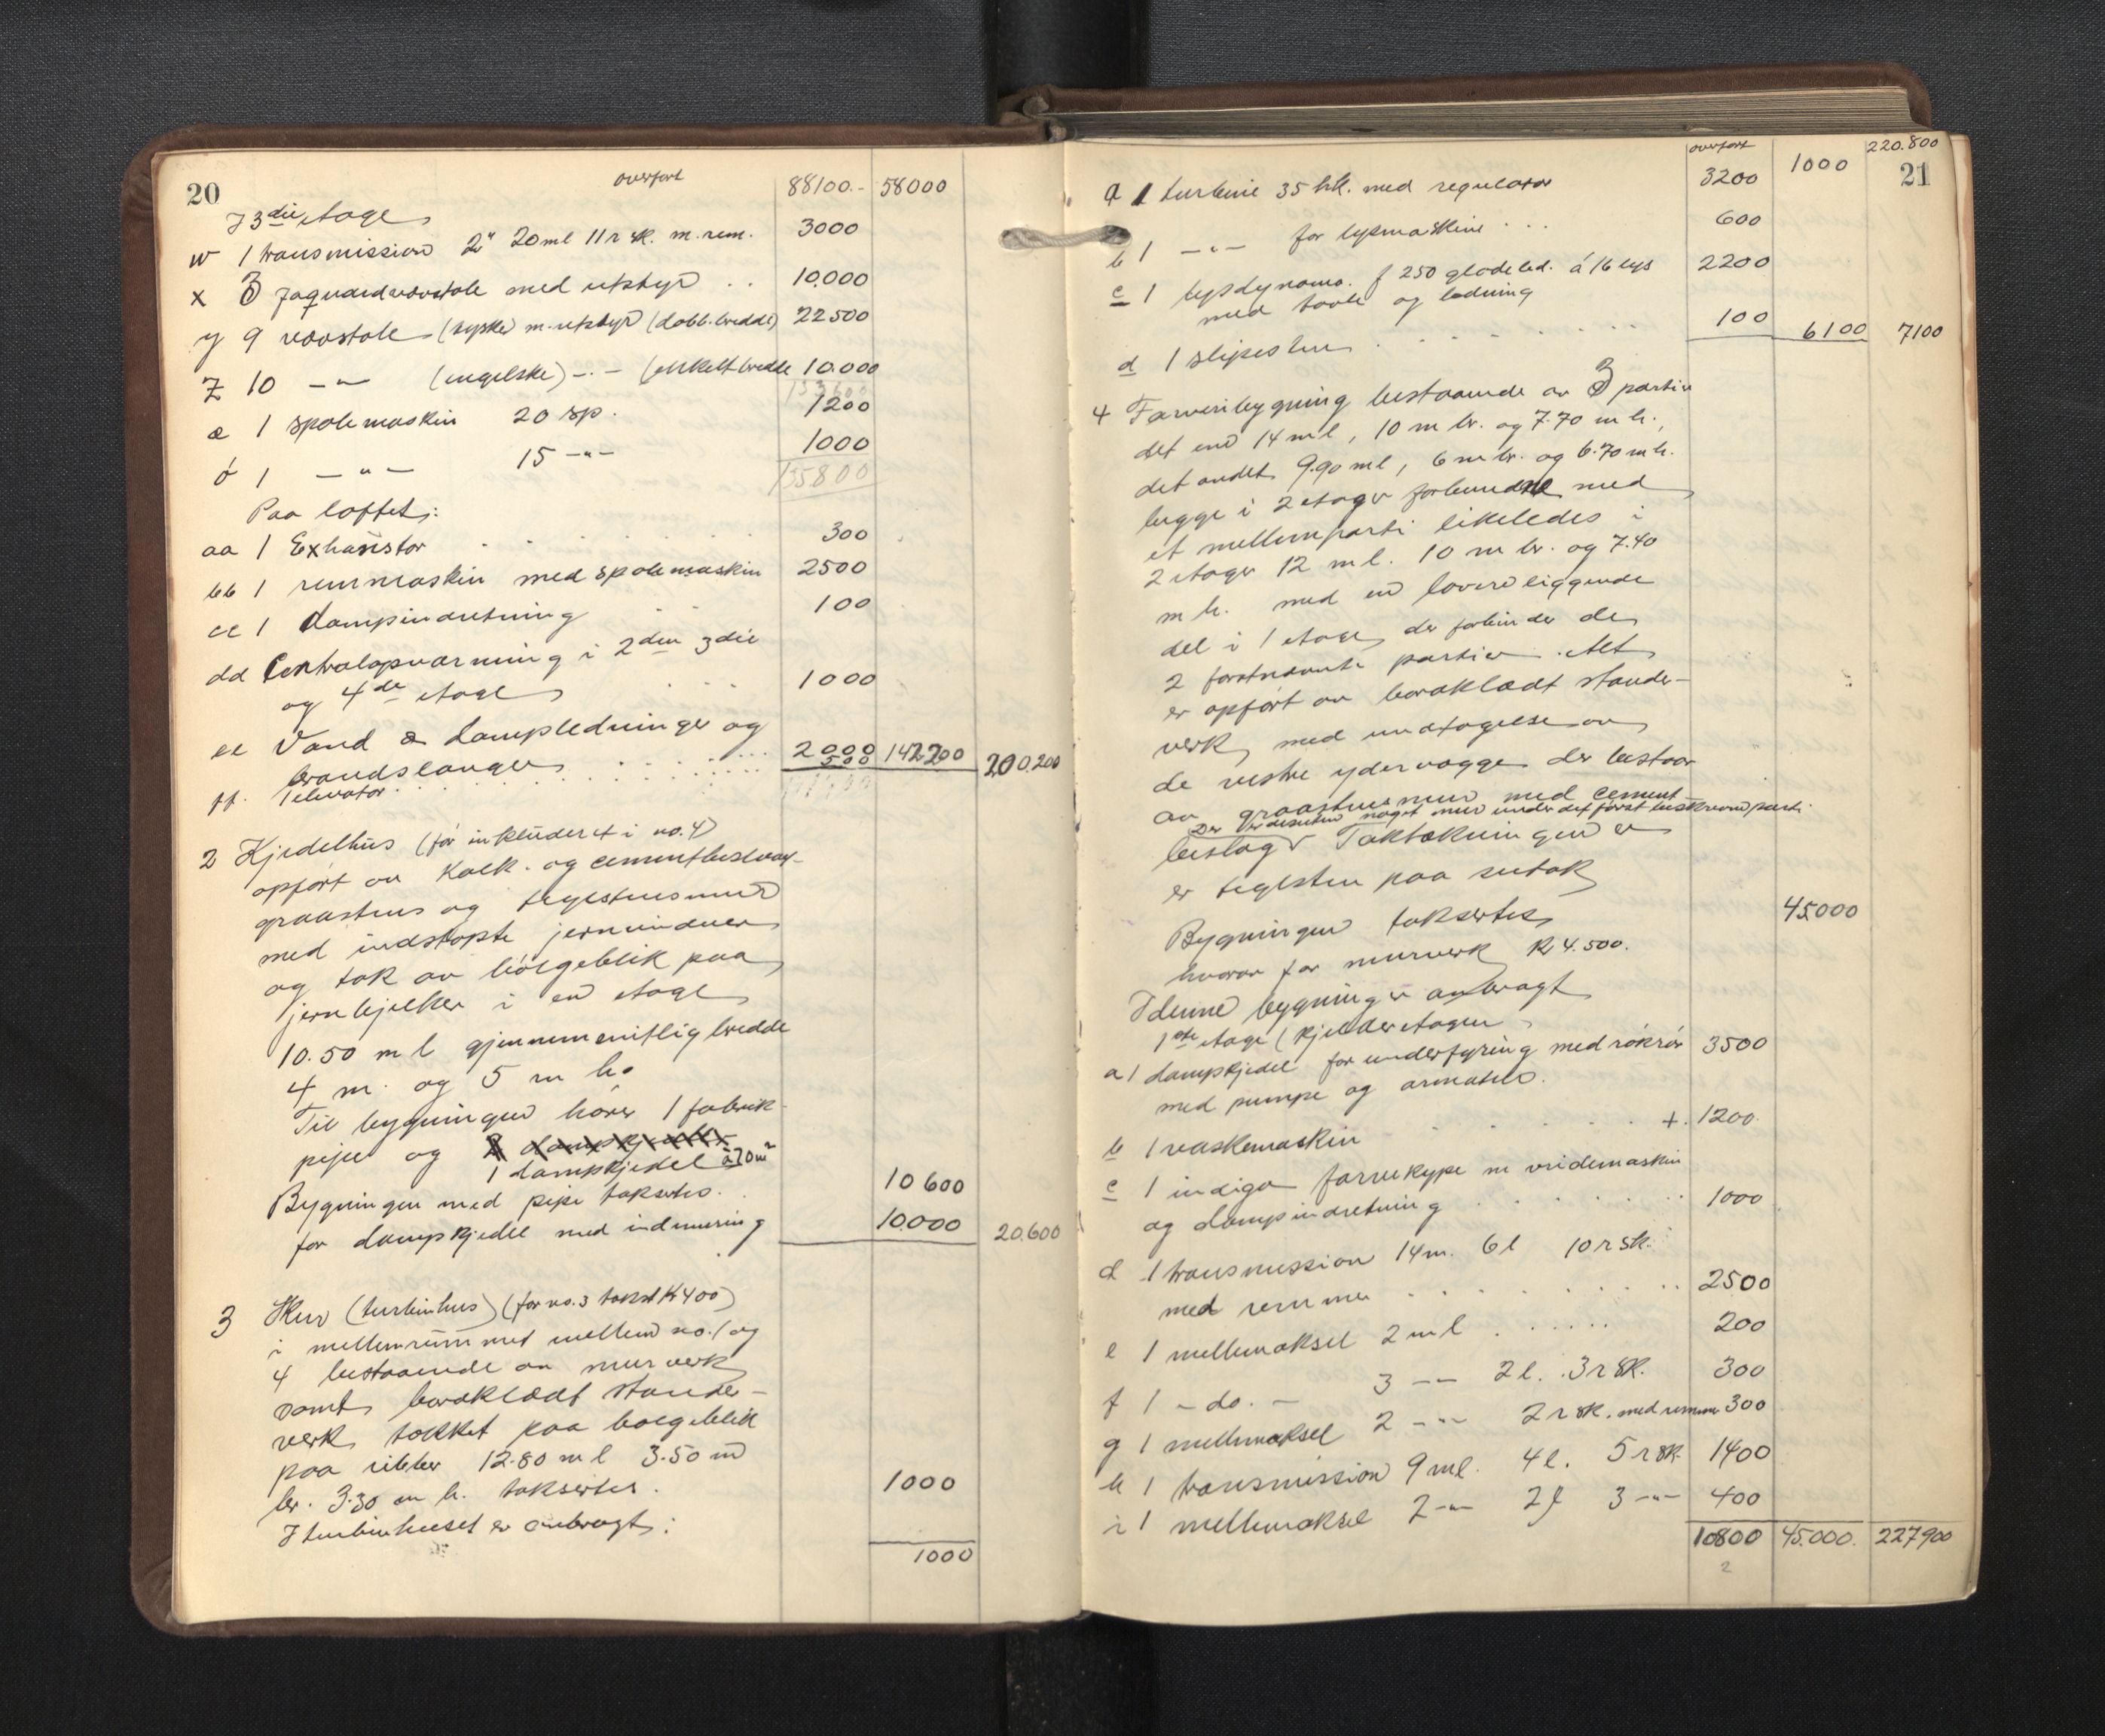 20
overført 88100.- 58000
I 3die etage
w 1 transmission 2" 20 m l 11 r sk. m. rem. 3000
x 3 jaquardvævstole med utstyr . . 10.000
y 9 vævstole (tyske) m. utstyr (dobb. bredde) 22500
z 10 -"- (engelske) -"- (enkelt bredde 10.000
æ 1 spolemaskin 20 sp. 1200
ø 1 -"- 15 -"- 1000
135800
Paa loftet:
aa 1 Exhaustor . . . . 300
bb 1 rennmaskin med spolemaskin 2500
cc 1 dampindretning . . 100
dd Centralopvarming i 2den 3die
og 4de etage . . . 1000
ee Vand & dampledninger og
brandslanger . . . 2000 142200 200.200
ff. 1 elevator . . . . 500
2 Kjedelhus (før inkluderet i no. 4)
opført av kalk- og cementbestøket
graastens og teglstensmur
med indstøpte jernvinduer
og tak av bølgeblik paa
jernbjelker i en etage
10.50 m l gjennemsnitlig bredde
4 m. og 5 m h.
Til bygningen hører 1 fabrik-
pipe og 2 dampkjedler
1 dampkjedel à 70 m²
Bygningen med pipe takseres . . 10 600
for dampkjedel med indmuring 10.000 20.600
3 Skur (turbinhus) (før no. 3 takst Kr 400)
i mellemrummet mellem no. 1 og
4 bestaaende av murverk
samt bordklædt stander-
verk tækket paa bølgeblik
paa ribber 12.80 m l 3.50 m
br. 3.30 m h. takseres . 1000
I turbinhuset er anbragt:
1000
21
overført 1000 220.800
a 1 turbine 35 hk. med regulator 3200
b 1 -"- for lysmaskine . . . 600
c 1 lysdynamo f 250 glødeled. á 16 lys 2200
med tavle og ledning
d 1 slipesten . . . . . . 100 6100 7100
4 Farveribygning bestaaende av 3 partier
det ene 14 m l, 10 m br. og 7.70 m h.,
det andet 9.90 m l, 6 m br. og 6.70 m h.
begge i 2 etager forbundne med
et mellemparti likeledes i
2 etager 12 m l. 10 m br. og 7.40
m h. med en lavere liggende
del i 1 etage der forbinder de
2 førstnævnte partier. Alt
er opført av bordklædt stander-
verk med undtagelse av
de vestre ydervægge der bestaar
av graastensmur med cement-
Der er desuten noget mur under det først beskrevne parti.
beslag Taktækningen er
er teglsten paa sutak
Bygningen takseres 45.000
hvorav for murverk Kr 4.500.
I denne bygning er anbragt
1ste etage (kjelderetagen
a 1 dampkjedel for underfyring med røkrør 3500
med pumpe og armatur.
b 1 vaskemaskin . . . . +. 1200.
c 1 indigo farvekype m vridemaskin
og dampindretning . . . . . 1000
d 1 transmission 14 m. 6 l 10 r sk.
med remmer . . . . . . 2500
e 1 mellemaksel 2 m l . . . . . 200
f 1 - do. - 3 -"- 2 l. 3 r sk. 300
g 1 mellemaksel 2 -"- 2 r sk. med remmer 300
h 1 transmission 9 m l. 4 l. 5 r sk 1400
i 1 mellemaksel 2 -"- 2 l 3 -"- 400
10800 45.000. 227900
2